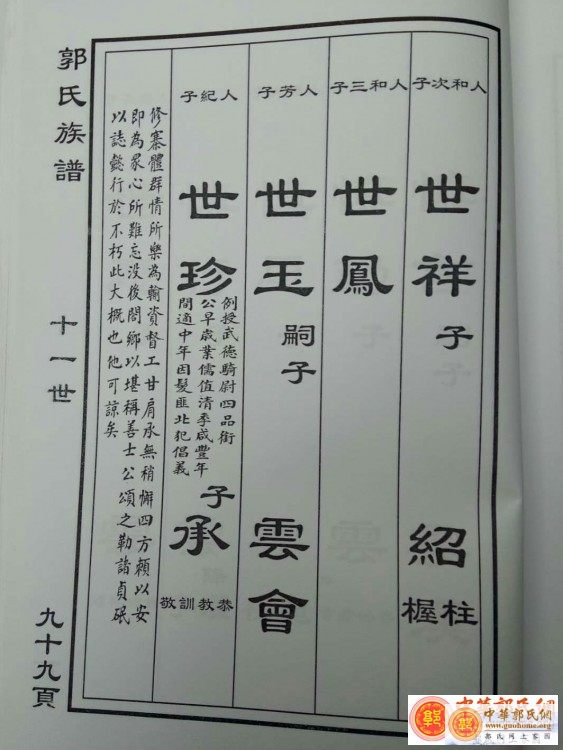 人和次子
世祥
子
紹
柱
楃
人和三子
世鳳
人芳子
世玉
嗣子
雲會
人紀子
世珍
例授武德騎尉四品銜
公早歲業儒值清季咸豐年
間適中年因髮匪北犯倡義
子
承
恭教訓敬
修寨體群情所樂為輸資督工甘肩承無稍懈四方賴以安
即為眾心所難忘没後閤鄉以堪稱善士公頌之勒諸貞珉
以誌懿行於不朽此大概也他可諒矣
郭氏族譜
十一世
九十九頁
中華郭氏網
www.guohome.org
郭氏网上家园